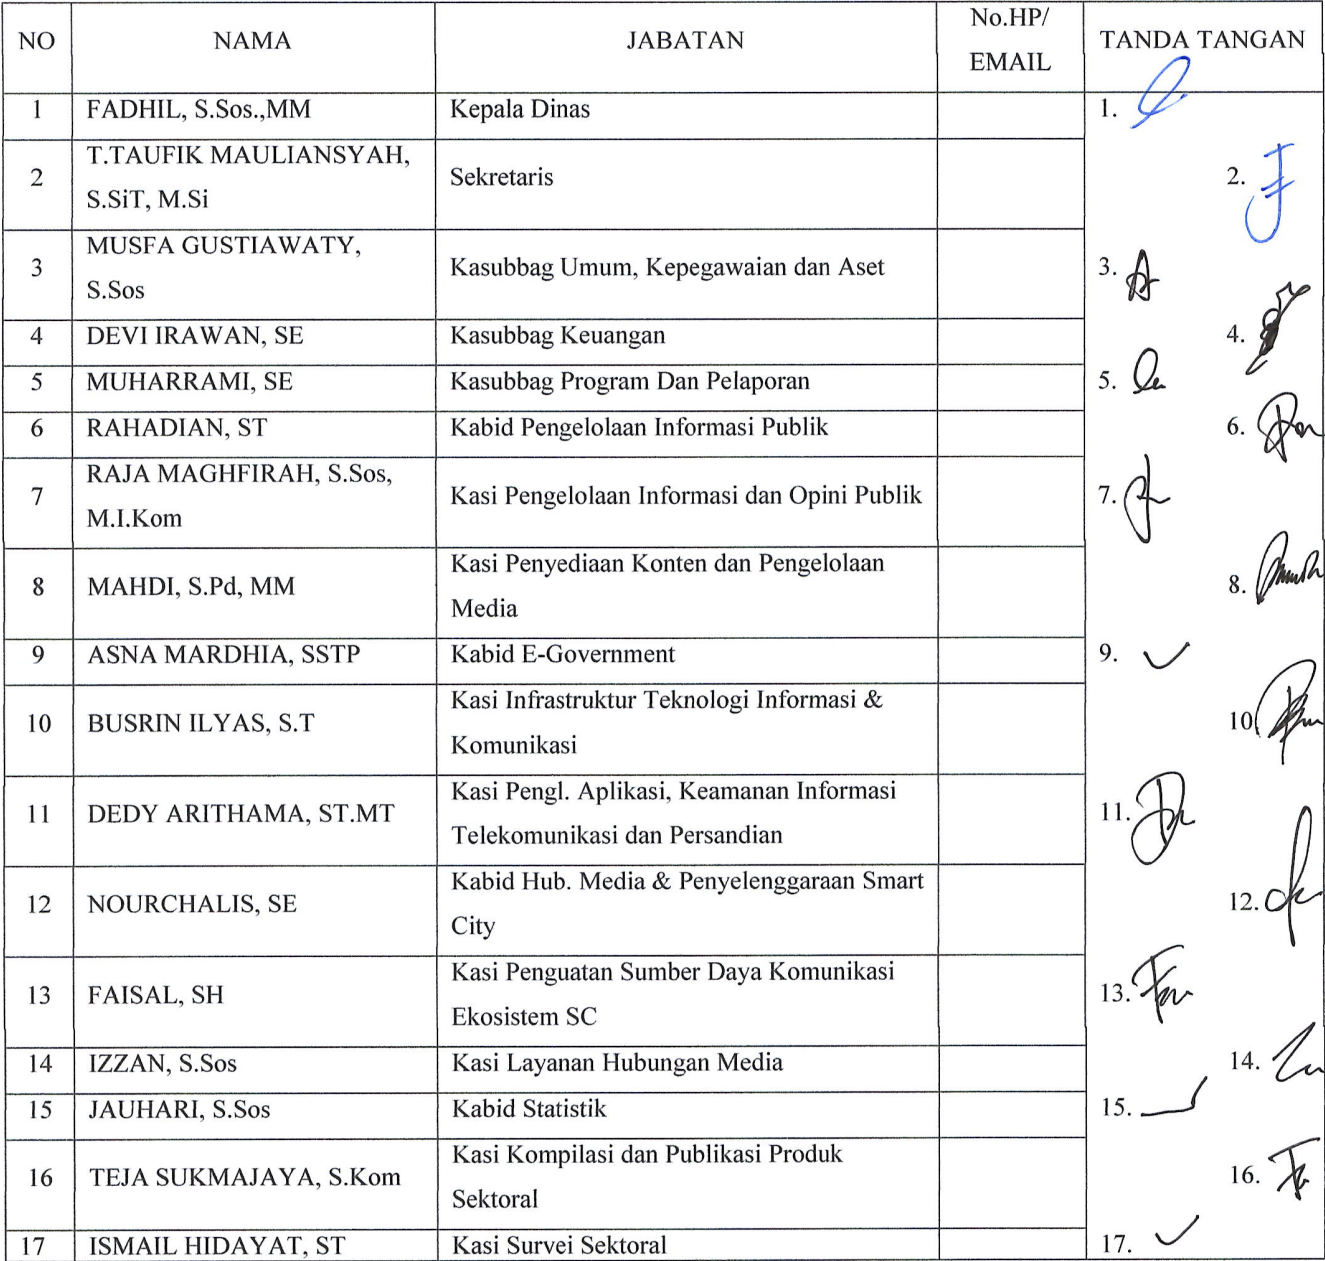 NO NAMA JABATAN No.HP/ EMAIL TANDA TANGAN
1 FADHIL, S.Sos.,MM Kepala Dinas 1.
2 T.TAUFIK MAULIANSYAH, Sekretaris 2.
S.SiT, M.Si
3 MUSFA GUSTIAWATY, Kasubbag Umum, Kepegawaian dan Aset 3.
S.Sos
4 DEVI IRAWAN, SE Kasubbag Keuangan 4.
5 MUHARRAMI, SE Kasubbag Program Dan Pelaporan 5.
6 RAHADIAN, ST Kabid Pengelolaan Informasi Publik 6.
7 RAJA MAGHFIRAH, S.Sos, Kasi Pengelolaan Informasi dan Opini Publik 7.
M.I.Kom
8 MAHDI, S.Pd, MM Kasi Penyediaan Konten dan Pengelolaan 8.
Media
9 ASNA MARDHIA, SSTP Kabid E-Government 9.
10 BUSRIN ILYAS, S.T Kasi Infrastruktur Teknologi Informasi & 10
Komunikasi
11 DEDY ARITHAMA, ST.MT Kasi Pengl. Aplikasi, Keamanan Informasi 11.
Telekomunikasi dan Persandian
12 NOURCHALIS, SE Kabid Hub. Media & Penyelenggaraan Smart 12.
City
13 FAISAL, SH Kasi Penguatan Sumber Daya Komunikasi 13.
Ekosistem SC
14 IZZAN, S.Sos Kasi Layanan Hubungan Media 14.
15 JAUHARI, S.Sos Kabid Statistik 15.
16 TEJA SUKMAJAYA, S.Kom Kasi Kompilasi dan Publikasi Produk 16.
Sektoral
17 ISMAIL HIDAYAT, ST Kasi Survei Sektoral 17.